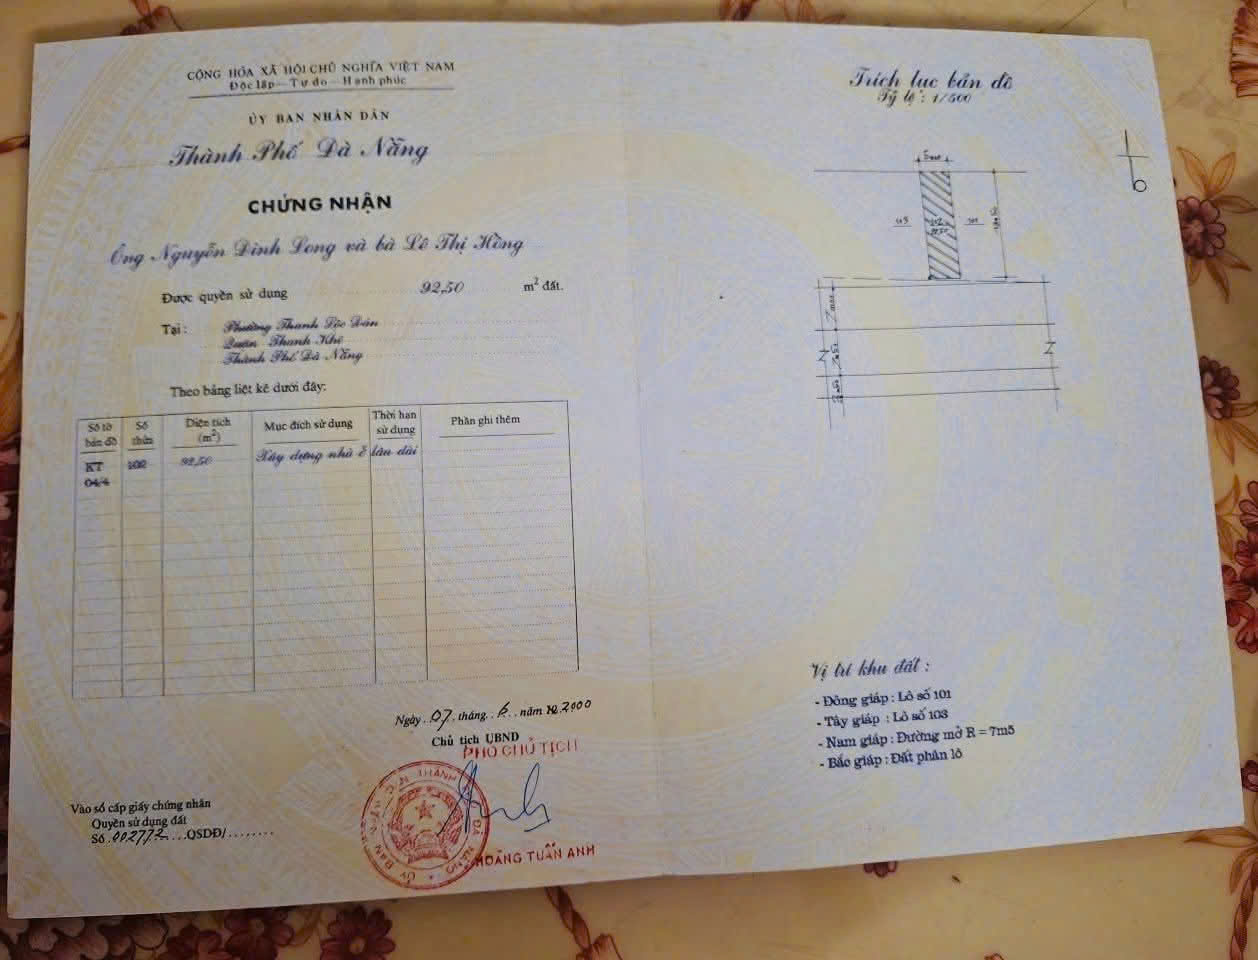 CỘNG HÒA XÃ HỘI CHỦ NGHĨA VIỆT NAM
Độc lập — Tự do — Hạnh phúc
ỦY BAN NHÂN DÂN
Thành Phố Đà Nẵng
CHỨNG NHẬN
Ông Nguyễn Đình Long và bà Lê Thị Hồng
Được quyền sử dụng 92,50 m² đất.
Tại : Phường Thanh Lộc Đán
Quận Thanh Khê
Thành Phố Đà Nẵng
Theo bảng liệt kê dưới đây:
Số tờ bản đồ Số thửa Diện tích (m²) Mục đích sử dụng Thời hạn sử dụng Phần ghi thêm
KT 04/4 102 92,50 Xây dựng nhà ở lâu dài
Ngày 07 tháng 6 năm 2000
Chủ tịch UBND
PHÓ CHỦ TỊCH
HOÀNG TUẤN ANH
Vào sổ cấp giấy chứng nhận
Quyền sử dụng đất
Số 002772 QSDĐ/
Trích lục bản đồ
Tỷ lệ : 1/500
Vị trí khu đất :
- Đông giáp : Lô số 101
- Tây giáp : Lô số 103
- Nam giáp : Đường mở R = 7m5
- Bắc giáp : Đất phân lô